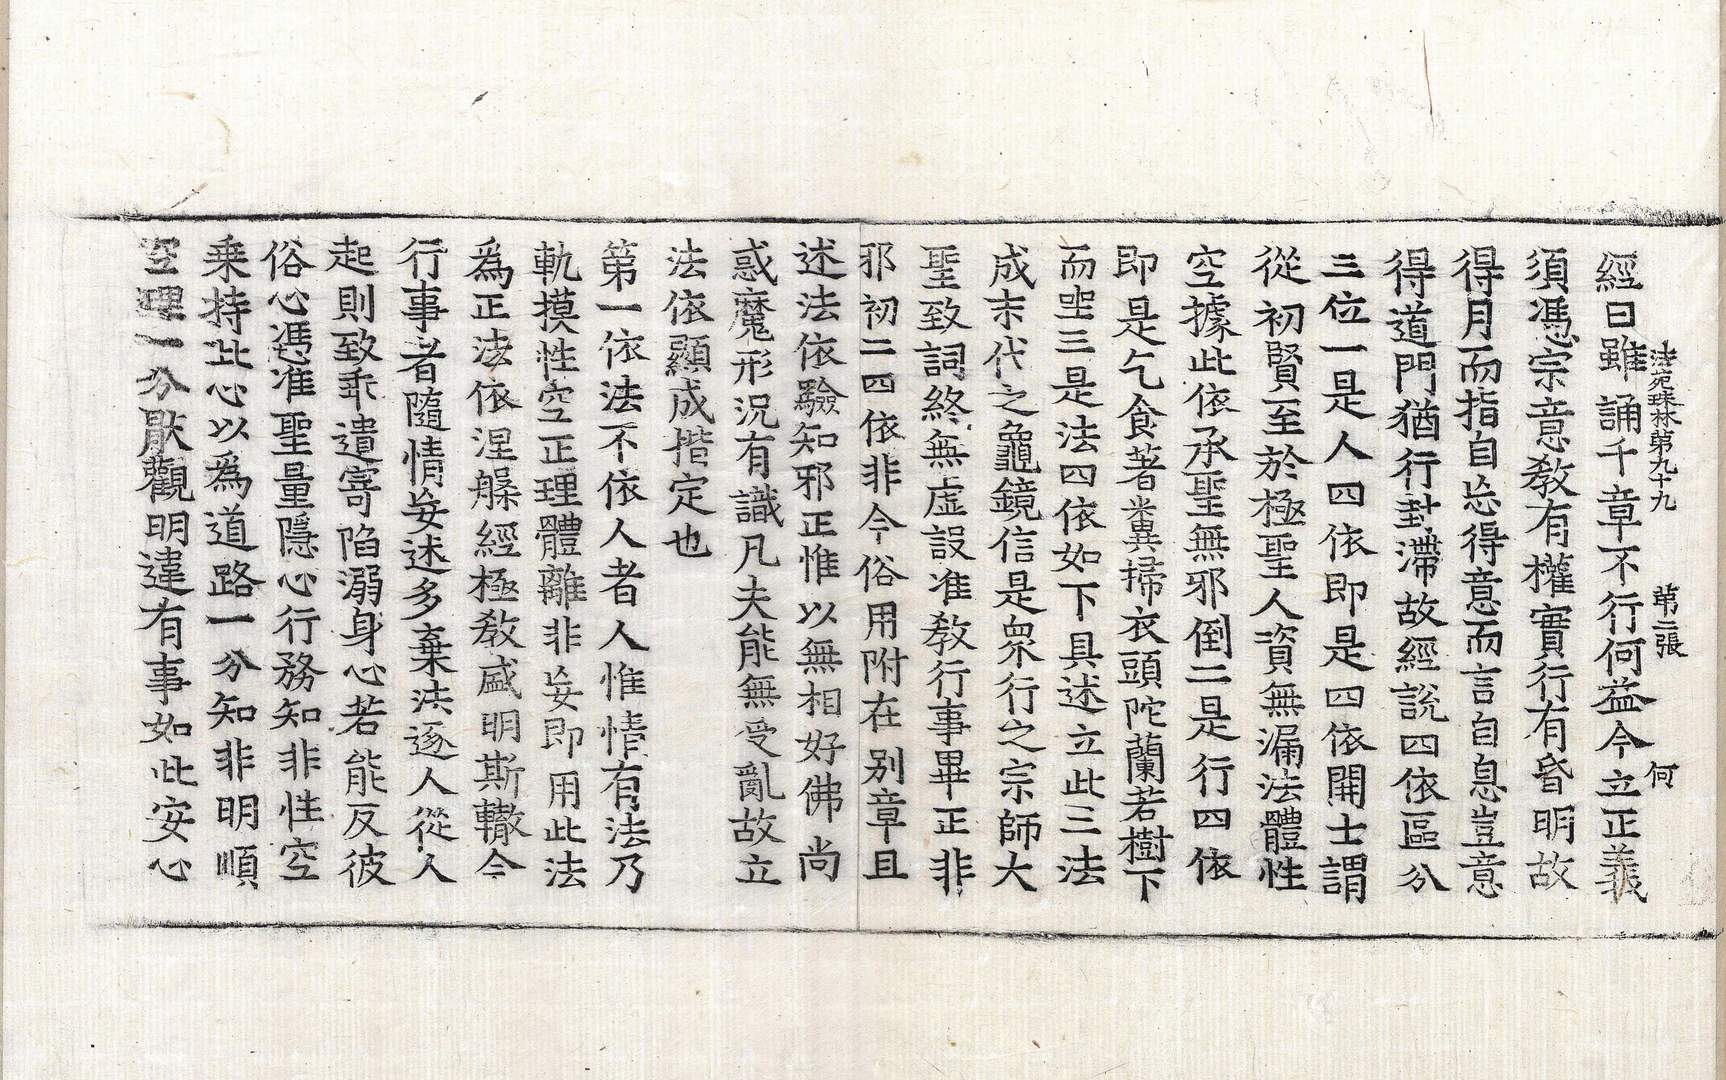 法苑珠林第九十九　第二張　何
經曰雖誦千章不行何益今立正義
須馮宗意教有權實行有昏明故
得月而指自忘得意而言自息豈意
得道門猶行封滯故經說四依區分
三位一是人四依即是四依開士謂
從初賢至於極聖人資無漏法體性
空據此依承聖無邪倒二是行四依
即是乞食著糞掃衣頭陀蘭若樹下
而坐三是法四依如下具述立此三法
成末代之龜鏡信是衆行之宗師大
聖致詞終無虛設准教行事畢正非
邪初二四依非今俗用附在別章且
述法依驗知邪正惟以無相好佛尚
惑魔形況有識凡夫能無受亂故立
法依顯成揩定也
第一依法不依人者人惟情有法乃
軌摸性空正理體離非妄即用此法
爲正法依涅槃經極教盛明斯轍今
行事者隨情妄述多棄法逐人從人
起則致乖遣寄陷溺身心若能反彼
俗心馮准聖量隱心行務知非性空
乗持此心以爲道路一分知非明順
空理一分猒觀明違有事如此安心